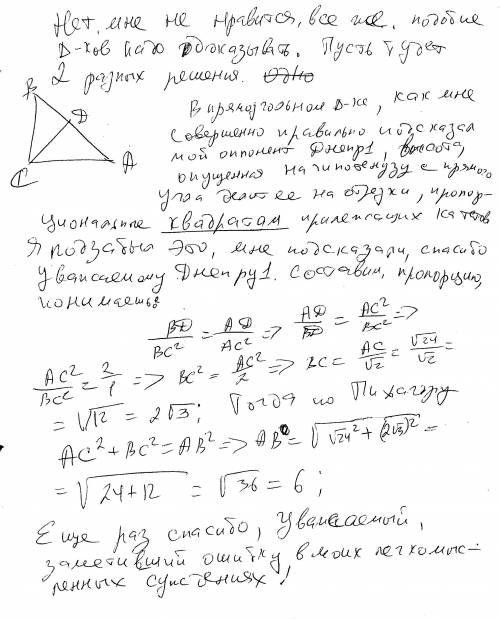 Нет, мне не нравится, все же, подобие
Δ-ков надо доказывать. Пусть будет
2 разных решения.
B
D
C
A
В прямоугольном Δ-ке, как мне
совершенно правильно подсказал
мой оппонент Днепр1, высота,
опущенная на гипотенузу с прямого
угла делит ее на отрезки, пропор-
циональные квадратам прилежащих катетов
Я подзабыл это, мне подсказали, спасибо
уважаемому Днепру1. Составим, пропорцию,
понимаешь:
BD/BC² = AD/AC² => AD/BD = AC²/BC² =>
AC²/BC² = 2/1 => BC² = AC²/2 => BC = AC/√2 = √24/√2 =
= √12 = 2√3; Тогда по Пифагору
AC² + BC² = AB² => AB = √(√24² + (2√3)²) =
= √(24+12) = √36 = 6;
Еще раз спасибо, Уважаемый,
заметивший ошибку, в моих легкомыс-
ленных суждениях!